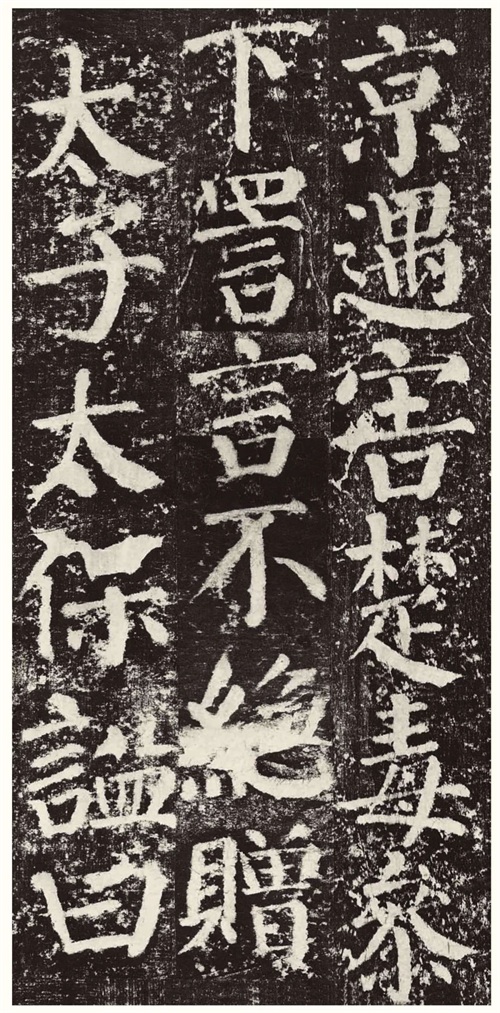 京遇害楚毒叅
下詈言不絶贈
太子太保謚曰